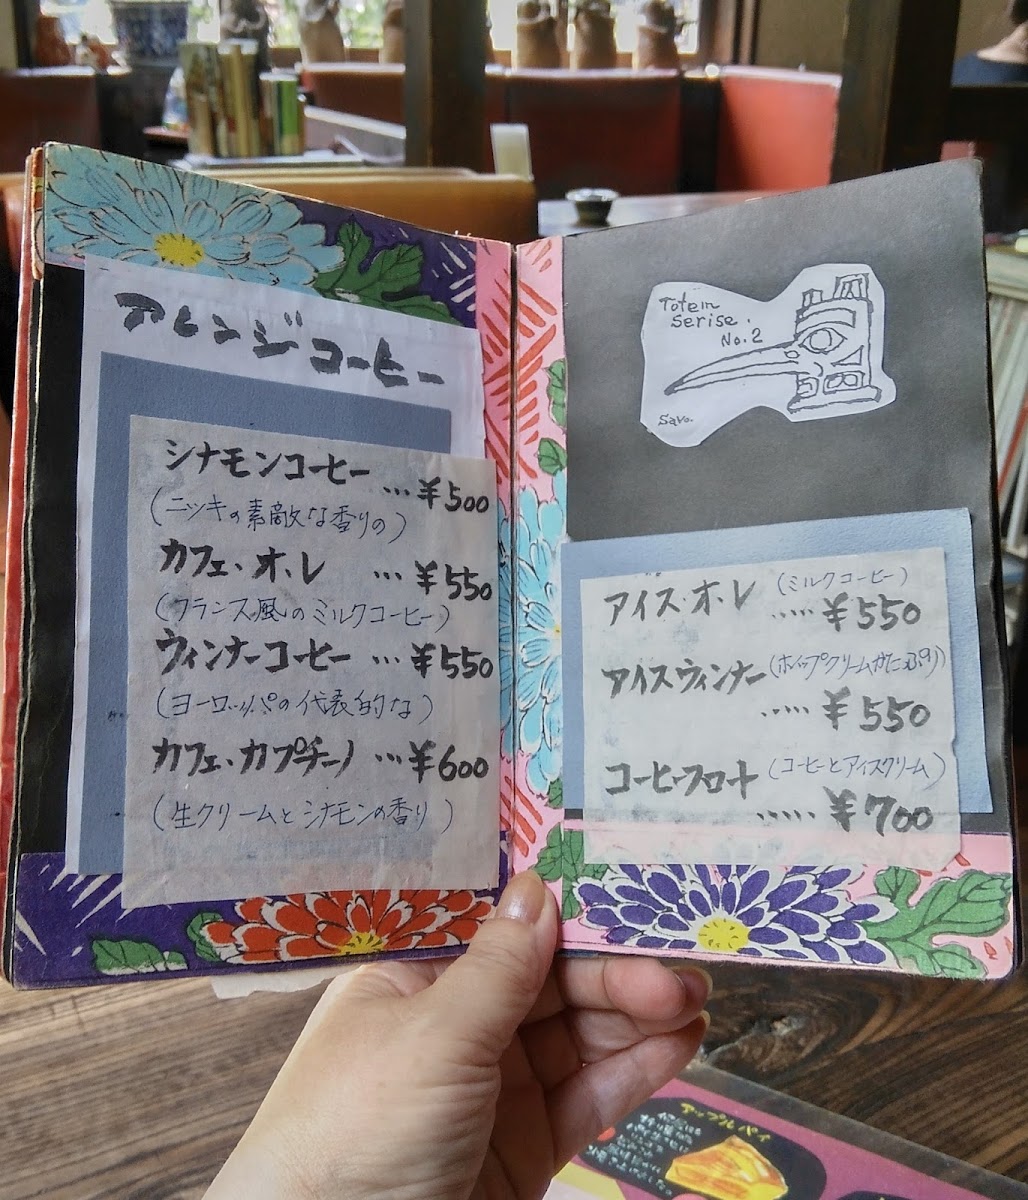 アレンジコーヒー
シナモンコーヒー
…¥500
(ニッキの素敵な香りの)
カフェ・オ・レ …¥550
(フランス風のミルクコーヒー)
ウィンナーコーヒー …¥550
(ヨーロッパの代表的な)
カフェ・カプチーノ …¥600
(生クリームとシナモンの香り)
Totem
Serise.
No.2
Savo.
アイス・オ・レ (ミルクコーヒー)
.....¥550
アイスウィンナー(ホイップクリームがたっぷり)
.....¥550
コーヒーフロート (コーヒーとアイスクリーム)
.....¥700
アップルパイ